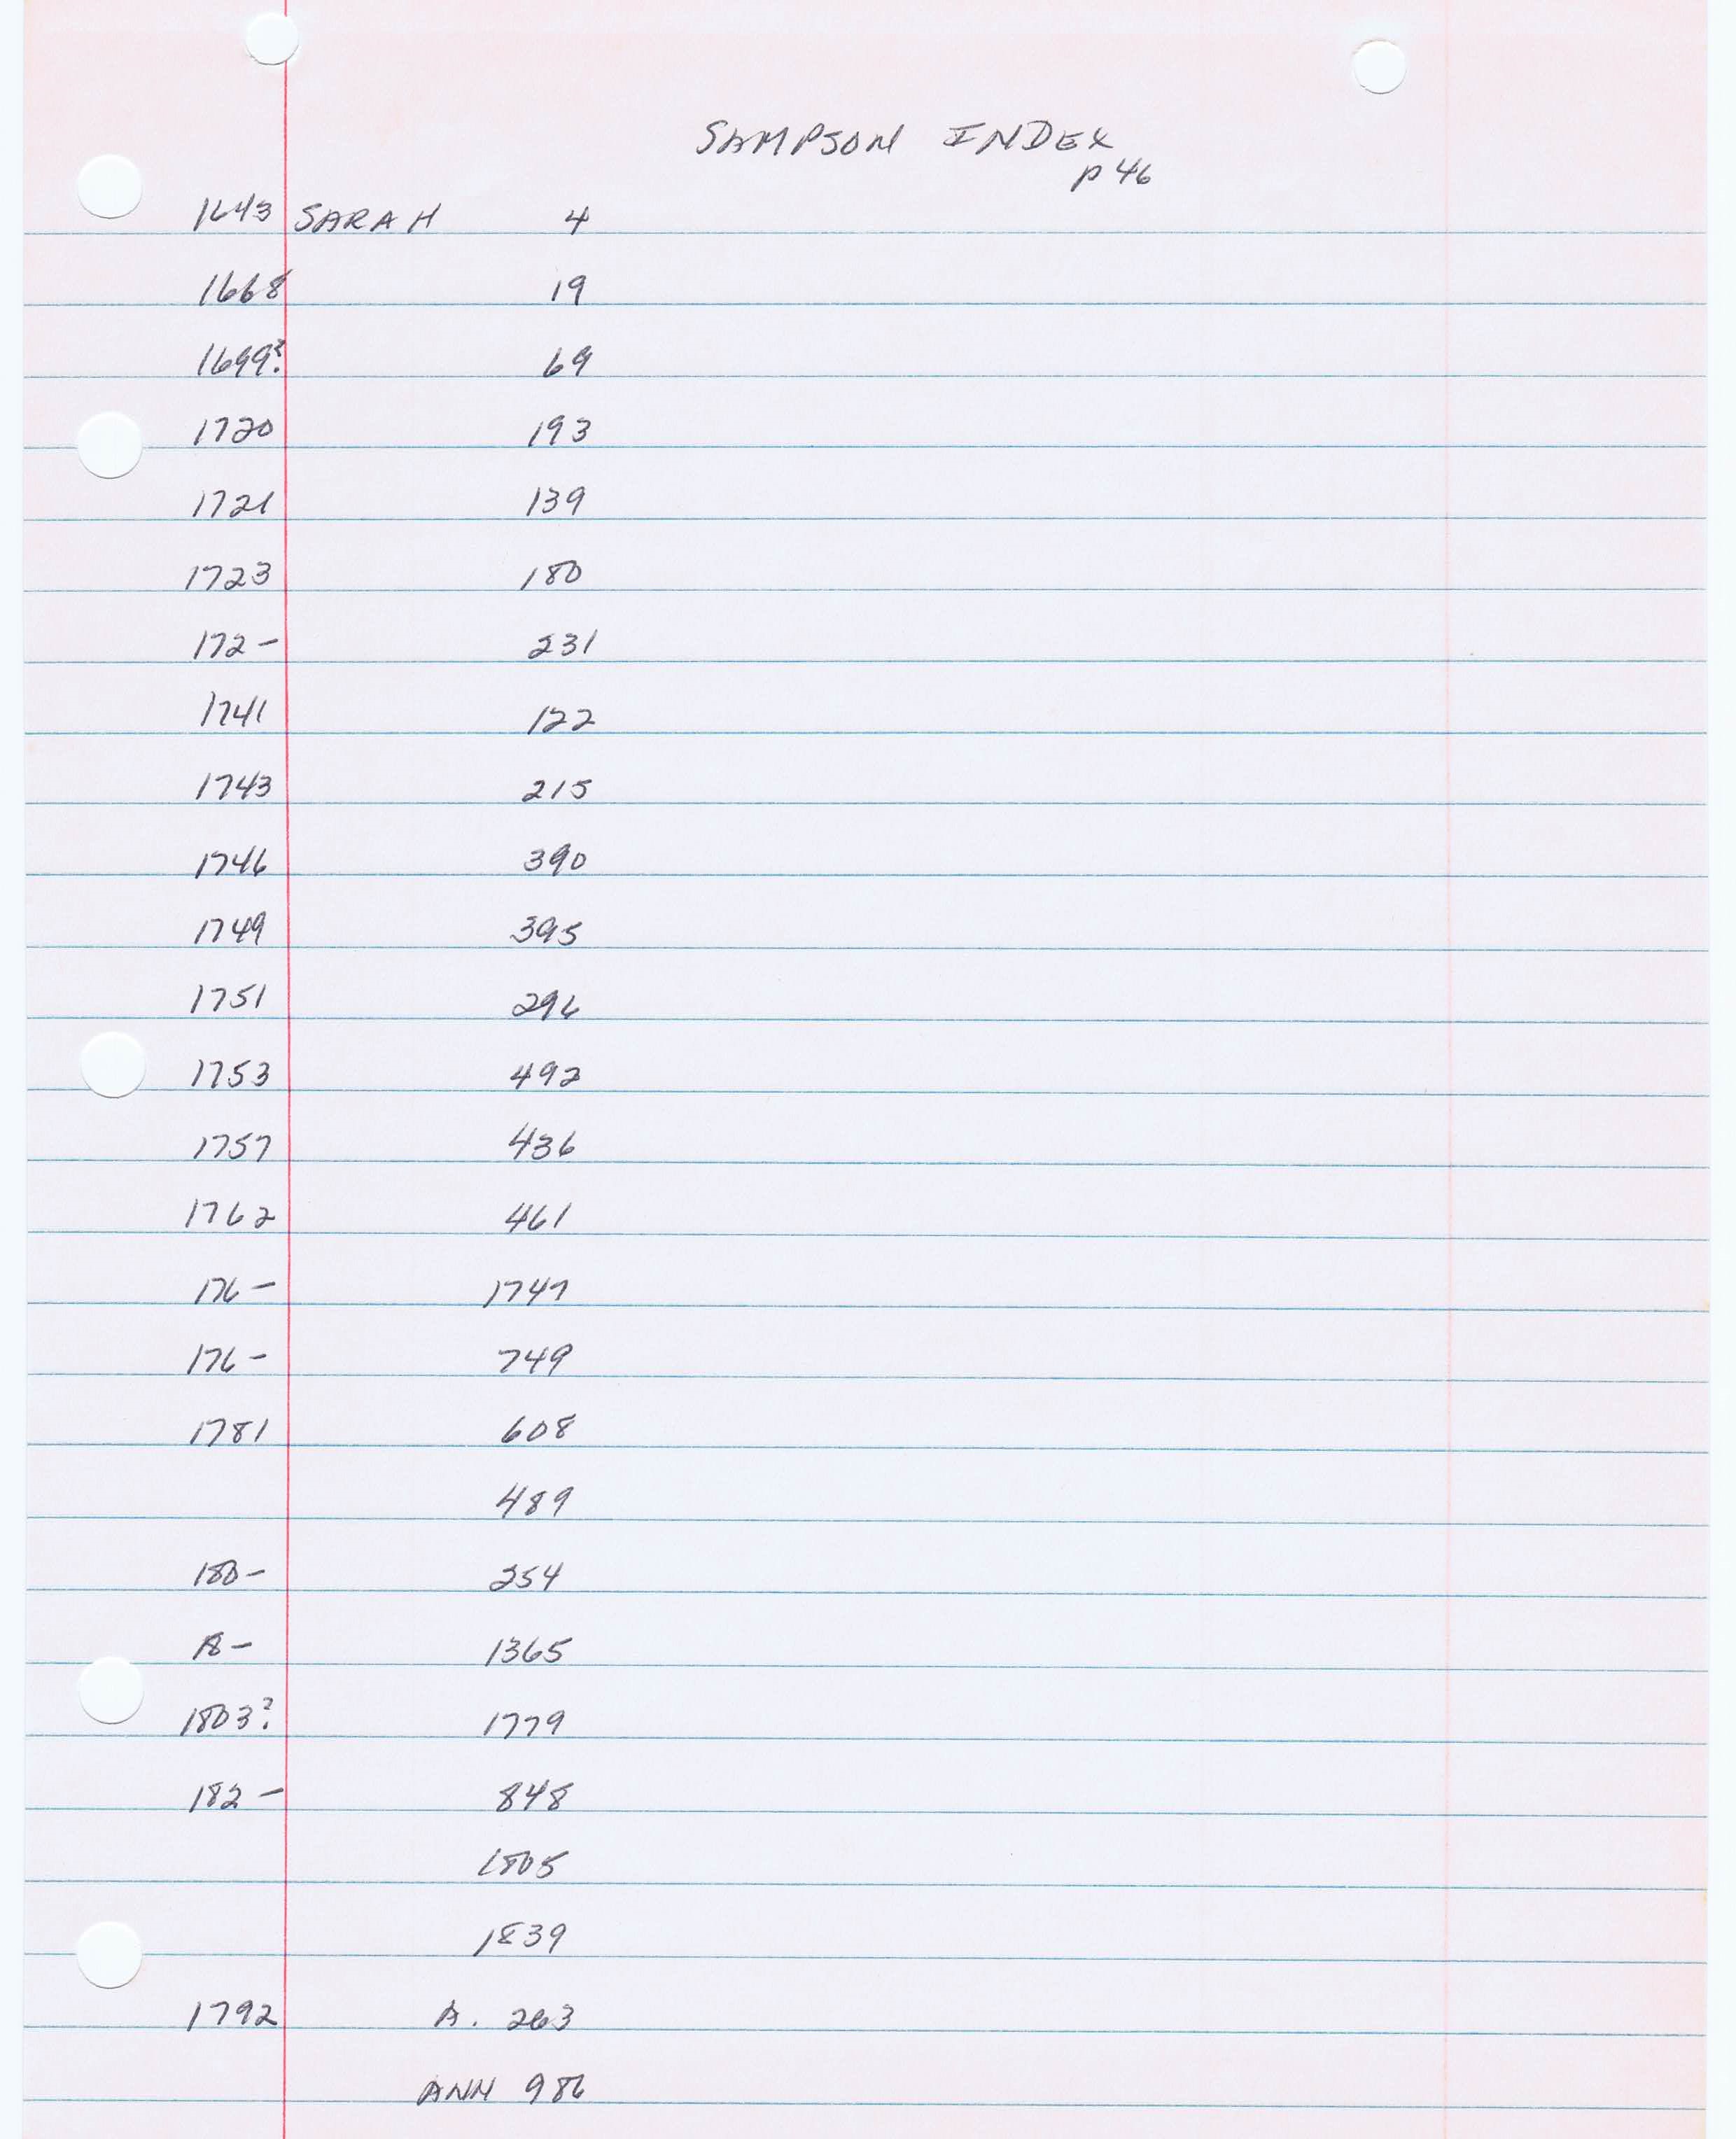 SAMPSON INDEX
p 46
1643 SARAH 4
1668 19
1699? 69
1720 193
1721 139
1723 180
172- 231
1741 122
1743 215
1746 390
1749 395
1751 296
1753 492
1757 436
1762 461
176- 1747
176- 749
1781 608
489
180- 254
18- 1365
1803? 1779
182- 848
1805
1839
1792 A. 263
ANN 986